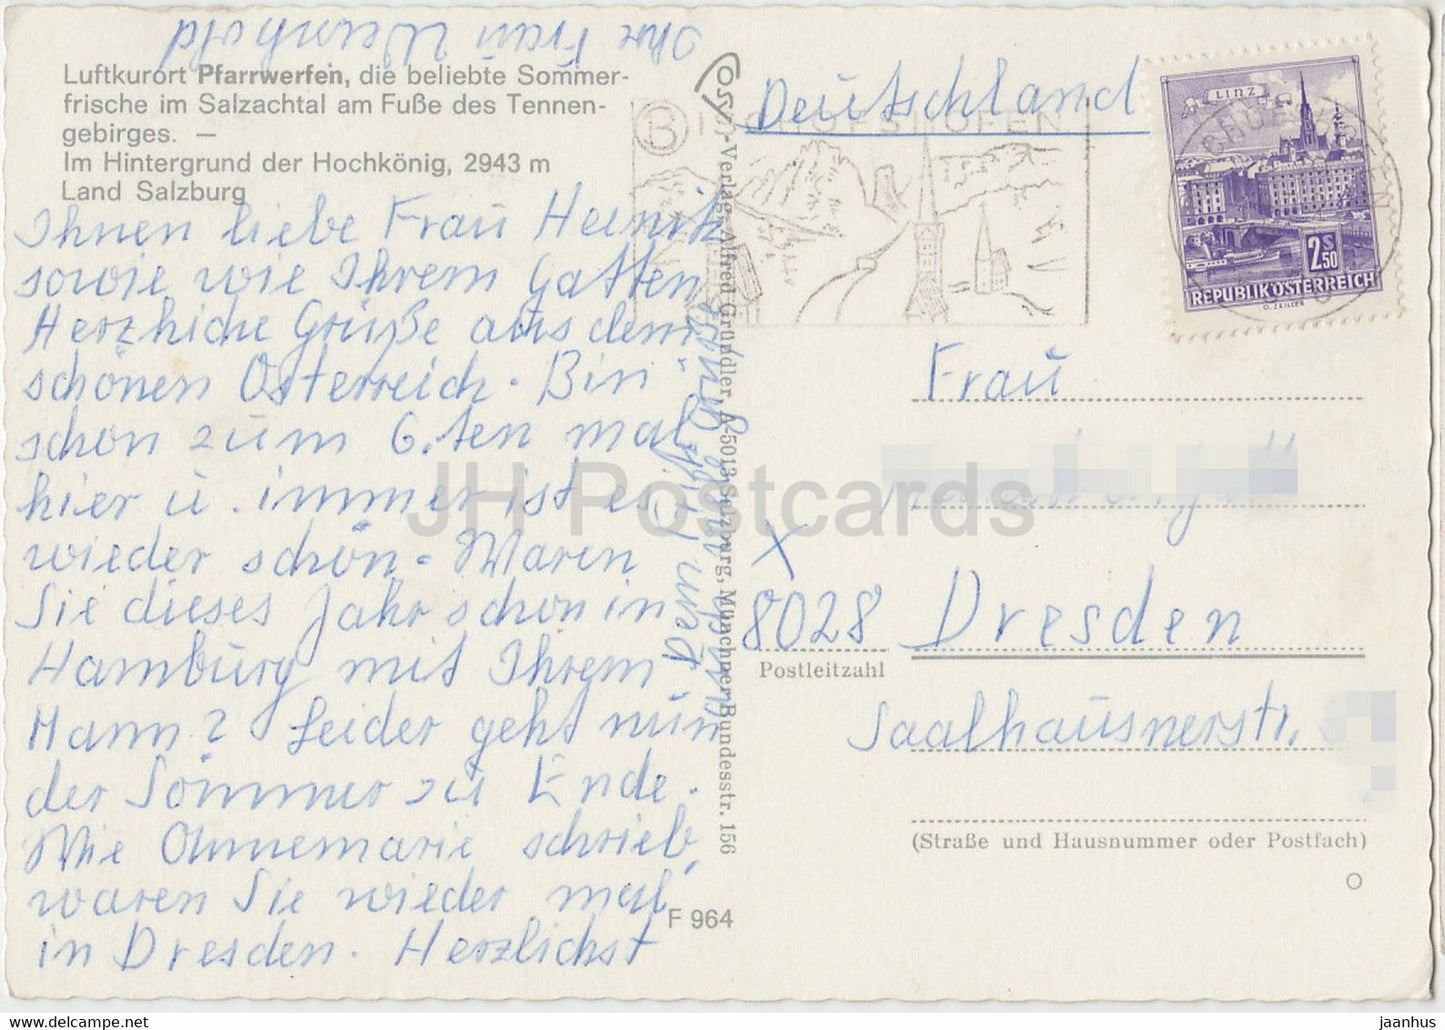 Luftkurort Pfarrwerfen, die beliebte Sommer-
frische im Salzachtal am Fuße des Tennen-
gebirges. —
Im Hintergrund der Hochkönig, 2943 m
Land Salzburg
Ihnen liebe Frau Heinitz
sowie wie Ihrem Gatten
Herzliche Grüße aus dem
schönen Österreich. Bin
schon zum 6.ten mal
hier u. immer ist es
wieder schön. Waren
Sie dieses Jahr schon in
Hamburg mit Ihrem
Mann? Leider geht nun
der Sommer zu Ende.
Wie Annemarie schrieb,
waren Sie wieder mal
in Dresden. Herzlichst
Grüße
Ihr Frau
F 964
Verlag Alfred Gründler, A-5013 Salzburg, Münchner Bundesstr. 156
Deutschland
B
BISCHOFSHOFEN
LINZ
2 S 50
REPUBLIK ÖSTERREICH
O. ZEILLER
Frau
x
8028 Dresden
Postleitzahl
Saalhausnerstr.
(Straße und Hausnummer oder Postfach)
JH Postcards
jaanhus
www.delcampe.net